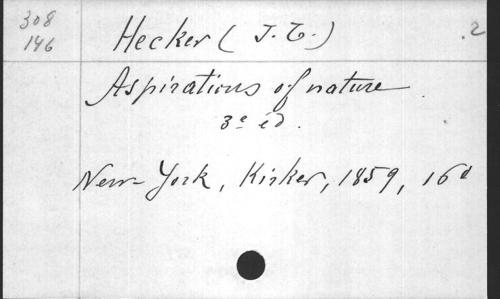 308 Hecker (J. T.) .2
146
Aspirations of nature.
3e éd.
New-York, Kirker, 1859, 16º